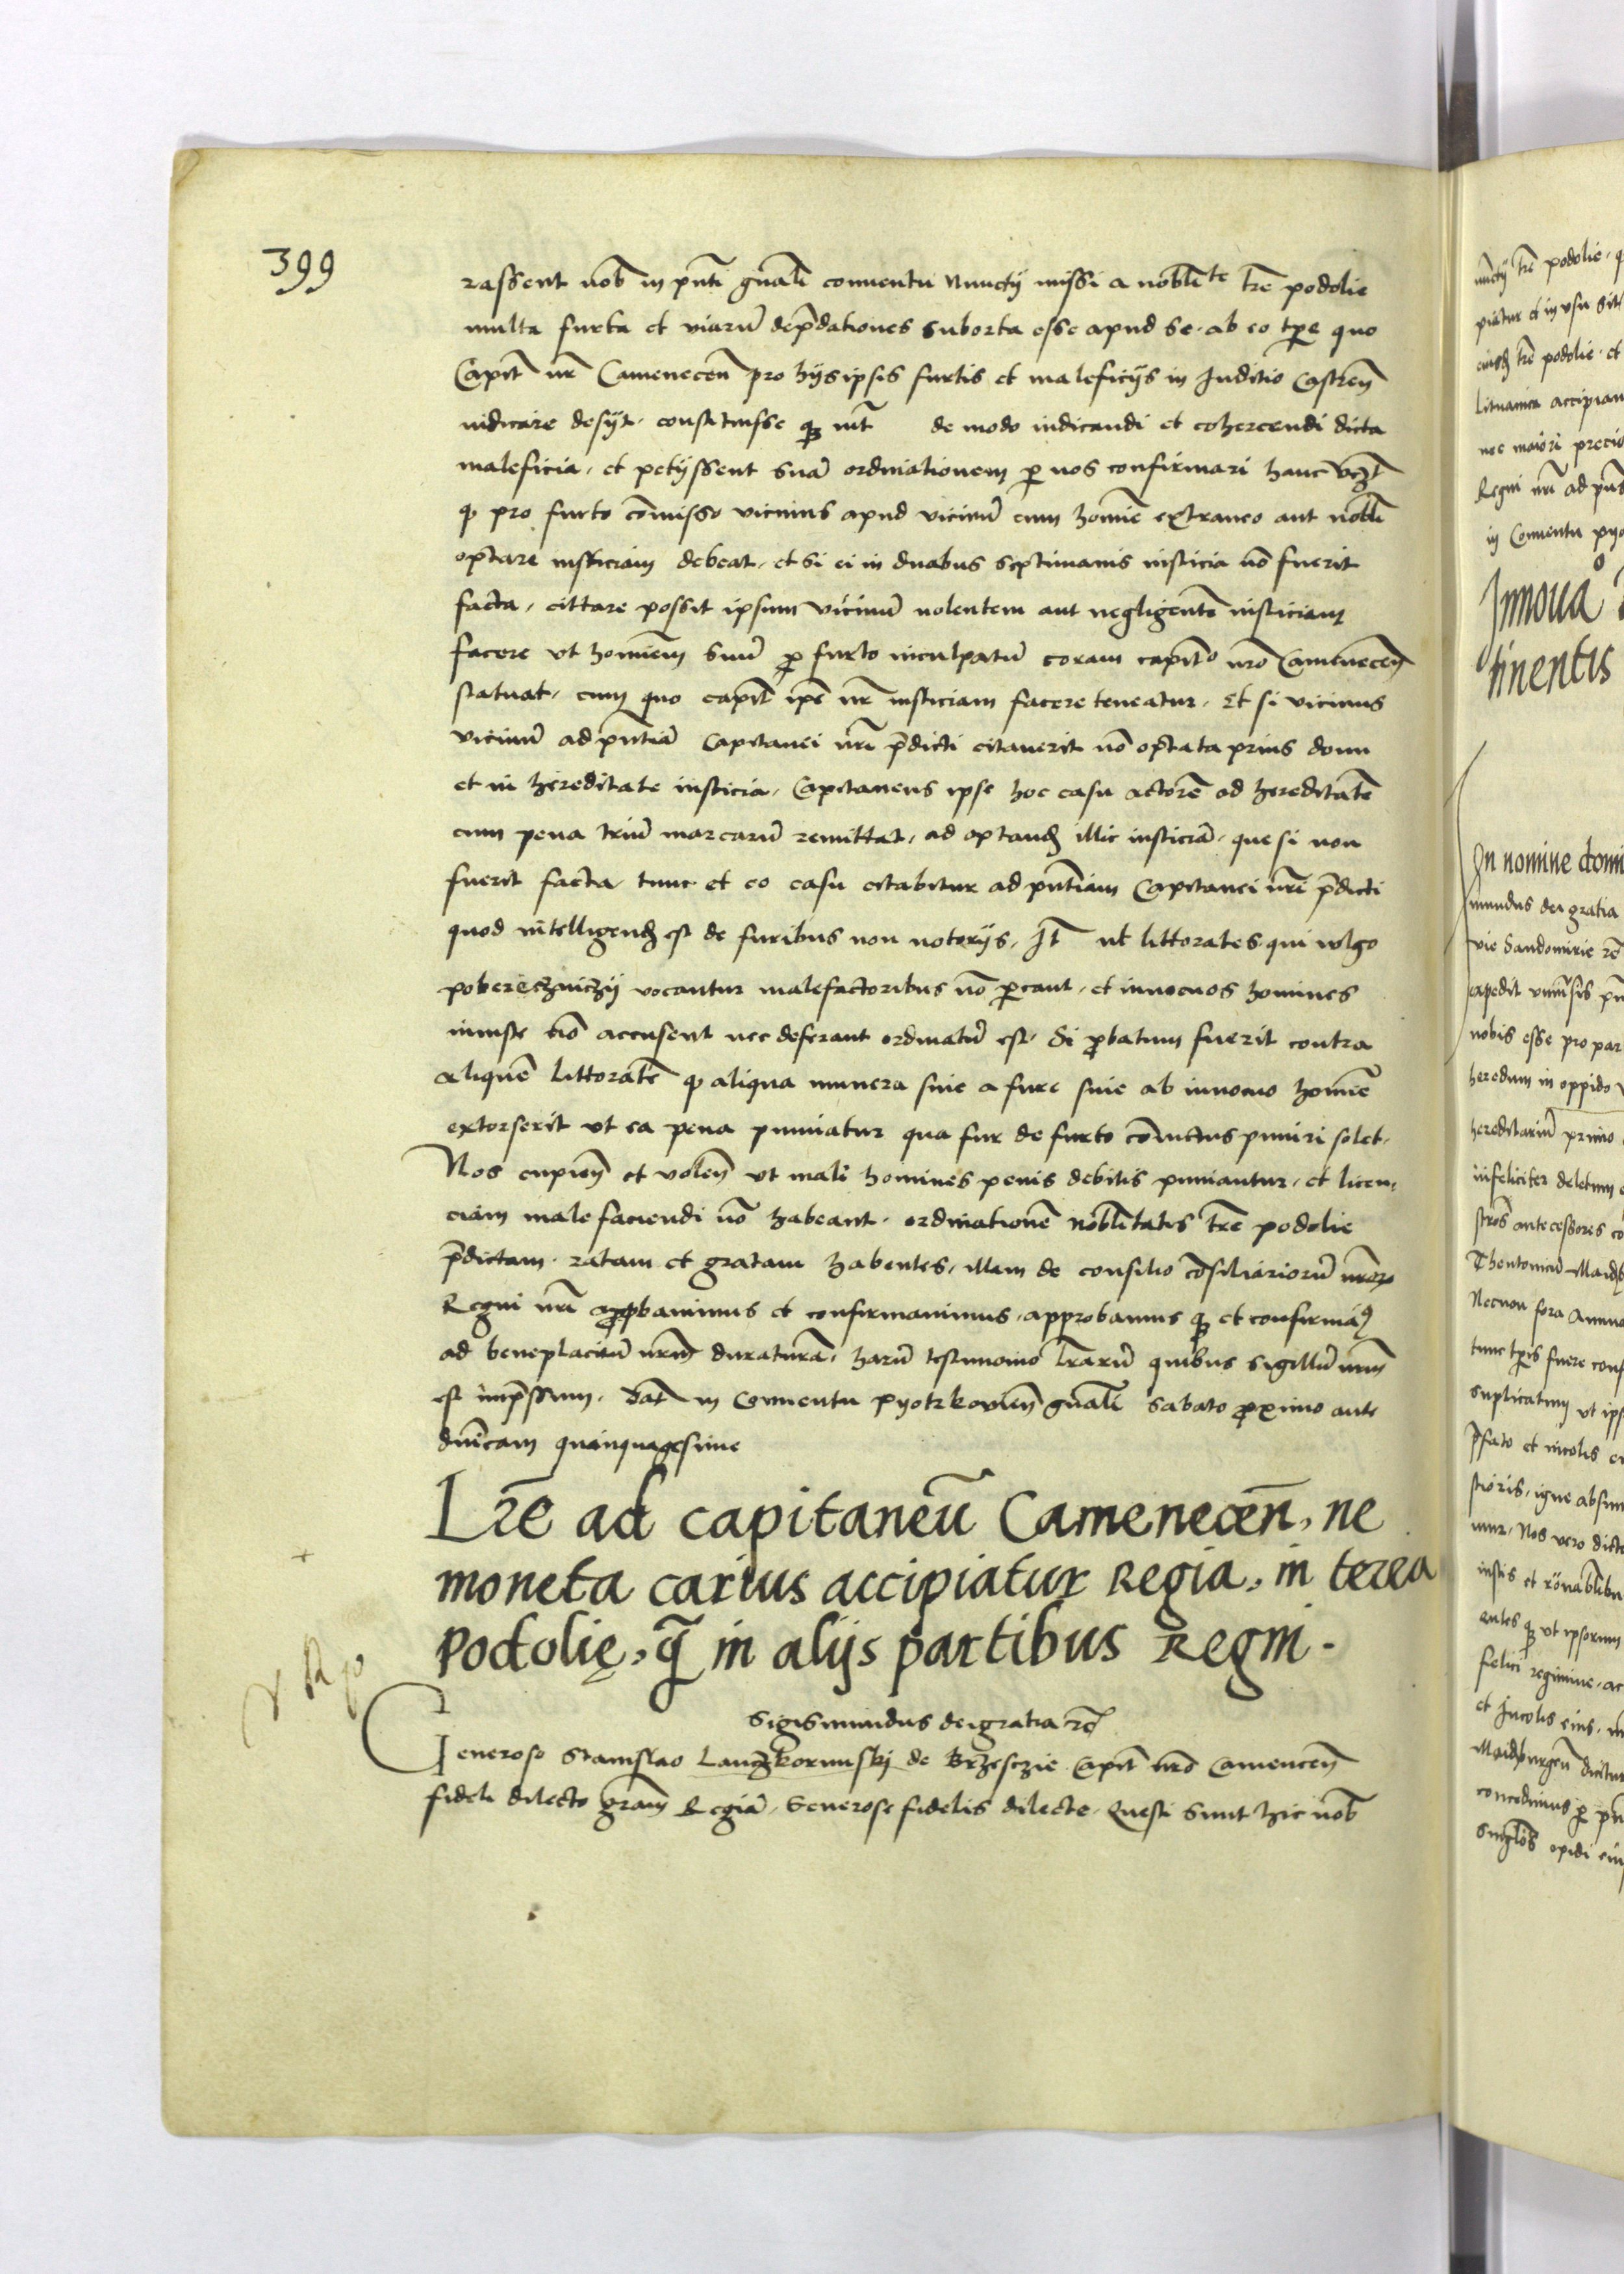 399
rassent nob in pn̄ti gn̄ali conuentu Nunctij missi a nobli^te trē podolie
multa furta et viarū dep̄dationes suborta esse apud se. ab eo tp̄re quo
Capit̄ nr̄ Camenecen̄ pro hijs ipsis furtis et maleficijs in Juditio Castren̄
iudicare desijt. constituisse q₃ int̄ de modo iudicandi et cohercendi dicta
maleficia, et petijssent suā ordinationem p nos confirmari hanc vcz̄t
ꝙ pro furto cōmisso vicinus apud vicinū cum homīe extraneo aut nobli
optare iusticiam debeat, et si ei in duabus septimanis iusticia nō fuerit
facta, cittare possit ipsum vicinū nolentem aut negligentē iusticiam
facere vt hominem suū ꝓ furto inculpatū coram capit^o nr̄o Camenecen̄
statuat, cum quo capit̄ ipē nr̄ iusticiam facere teneatur. Et si vicinus
vicinū ad pn̄tiā Capitanei nr̄i p̄dicti citauerit nō optata prius domi
et in hereditate iusticia, Capitaneus ipse hoc casu actorē ad hereditatē
cum pena triū marcarū remittat, ad optand̄ illic iusticiā. que si non
fuerit facta tunc et eo casu citabitur ad pn̄tiam Capitanei nr̄i p̄dicti
quod intelligend̄ est de furibus non notorijs. Jt̄ vt littorates qui volgo
poberezniczij vocantur malefactoribus nō parcant, et innocuos homines
iniuste nō accusent nec deferant ordinatū est. Si probatum fuerit contra
aliquē littoratē ꝙ aliqua munera siue a fure siue ab innocuo homīe
extorserit vt ea pena puniatur qua fur de furto cōuictus puniri solet.
Nos cupien̄ et volen̄ vt mali homines penis debitis puniantur, et licen-
ciam male faciendi nō habeant. ordinationē nobilitatis trē podolie
p̄dictam. ratam et gratam habentes, illam de consilio cōsiliariorū nrōrꝫ
Regni nr̄i approbauimus et confirmauimus, approbamus q₃ et confirmāꝰ
ad beneplacitū nr̄m duraturā. harū testimonio lr̄arū quibus sigillū nr̄m
est imp̄ssum. Dat̄ in Conuentu pyotrkouien̄ gn̄ali Sabato proximo ante
dn̄icam quinquagesime
Lr̄e ad capitaneū Camenecen̄, ne
moneta carius accipiatur Regia, in terra
Podolię, q̄ in alijs partibus Regni.
Sigismundus dei gratia rꝫ
Generoso Stanislao Lanczkorunskj de Brzesczie Capit̄ nr̄o Camenecen̄
fideli dilecto gr̄am Regiā. Generose fidelis dilecte. Questi sunt hic nob
nunctij trē podolie, q
piatur et in vsu sit
eiusd̄ trē podolie. et
Lituanica accipian
nec maiori precio
Regni nr̄i ad pn̄s
in Conuentu pyo
Jnnoua
tinentis
In nomine domi
mundus dei gratia
vie Sandomirie rē
expedit vniuersis pn̄
nobis esse pro par
heredum in oppido
hereditariū primo
infeliciter deletum
stros antecessores co
Thentonicū Maidb
Necnon fora Annua
tunc tp̄ris fuere conf
suplicatum vt ips
p̄fato et incolis
stioris, igne absum
mur. Nos vero dicte
iustis et rōnablibu
antes q₃ vt ipsorum
felici regimine, ac
et Jncolis eius, in
Maidburgen̄ dicitur
concedimus p pn̄
singlōs opidi eiu